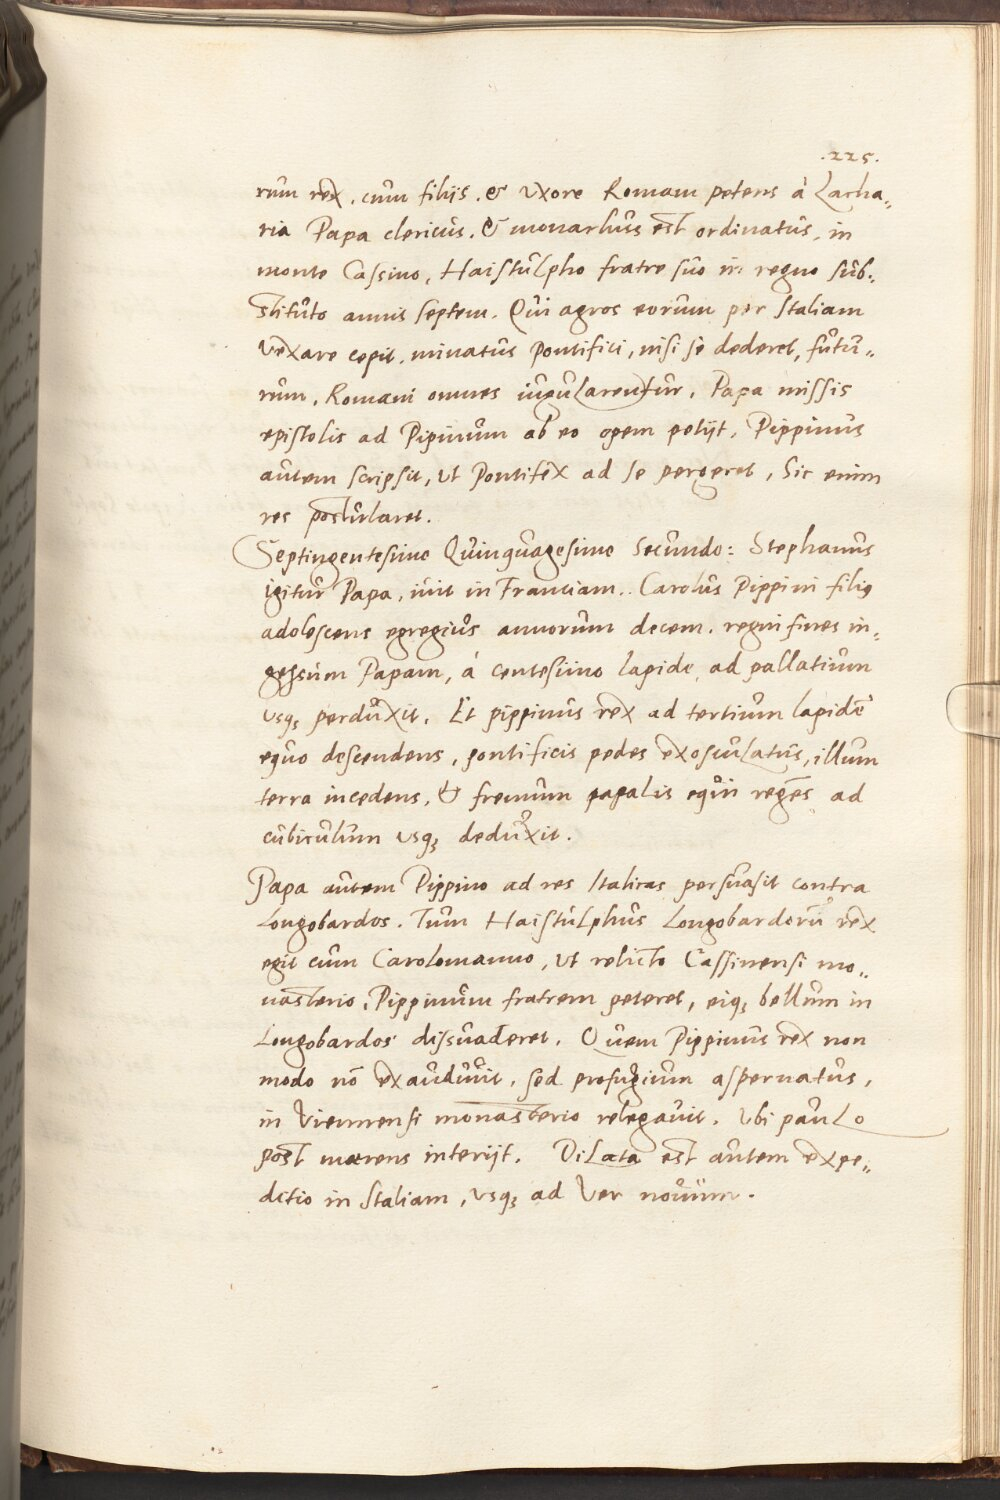 .225.
rum rex, cum filijs, & uxore Romam petens à Zacha„
ria Papa clericus, & monachus est ordinatus, in
monte Cassino, Haistulpho fratre suo in regno sub„
stituto annis septem. Qui agros eorum per Italiam
vexare cepit, minatus Pontifici, nisi se dederet, futu„
rum, Romani omnes iugularentur. Papa missis
epistolis ad Pipinum ab eo opem petijt, Pippinus
autem scripsit, ut Pontifex ad se pergeret, Sic enim
res postularet.
Septingentesimo Quinquagesimo Secundo: Stephanus
igitur Papa, iuit in Franciam. Carolus Pippini filiꝯ
adolescens egregius annorum decem, regni fines in„
gressum Papam, à centesimo lapide, ad pallatium
usqꝫ perduxit. Et pippinus rex ad tertium lapidē
equo descendens, pontificis pedes exosculatus, illum
terra incedens, & frenum papalis equi regens ad
cubiculum usqꝫ deduxit.
Papa autem Pippino ad res Italicas persuasit contra
Longobardos. Tum Haistulphus Longobardorū rex
egit cum Carolomanno, ut relicto Cassinensi mo„
nasterio, Pippinum fratrem peteret, eiqꝫ bellum in
Longobardos dissuaderet. Quem Pippinus rex non
modo nō exaudiuit, sed profugium aspernatus,
in Viennensi monasterio relegauit. Ubi paulo
post merens interijt. Dilata est autem expe„
ditio in Italiam, usqꝫ ad Ver nouum.